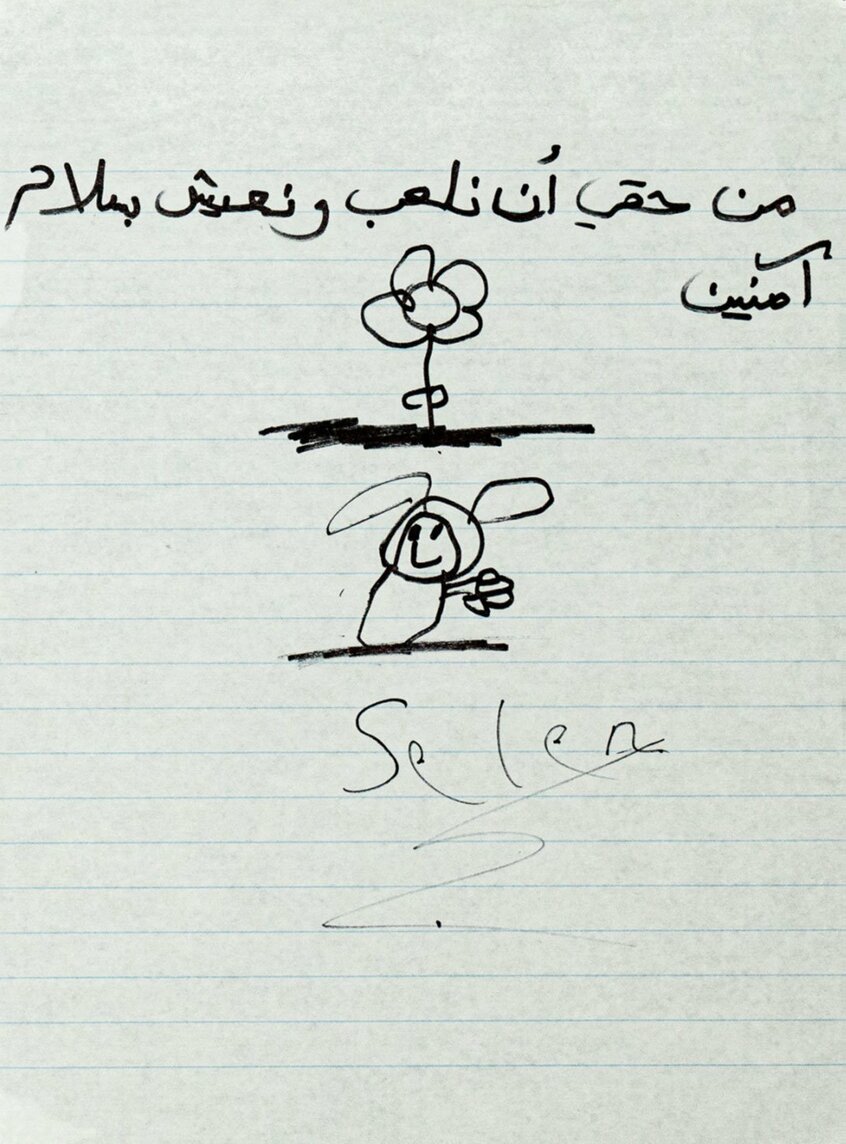 من حقي أن نلعب ونعيش بسلام
آمنين
Selen